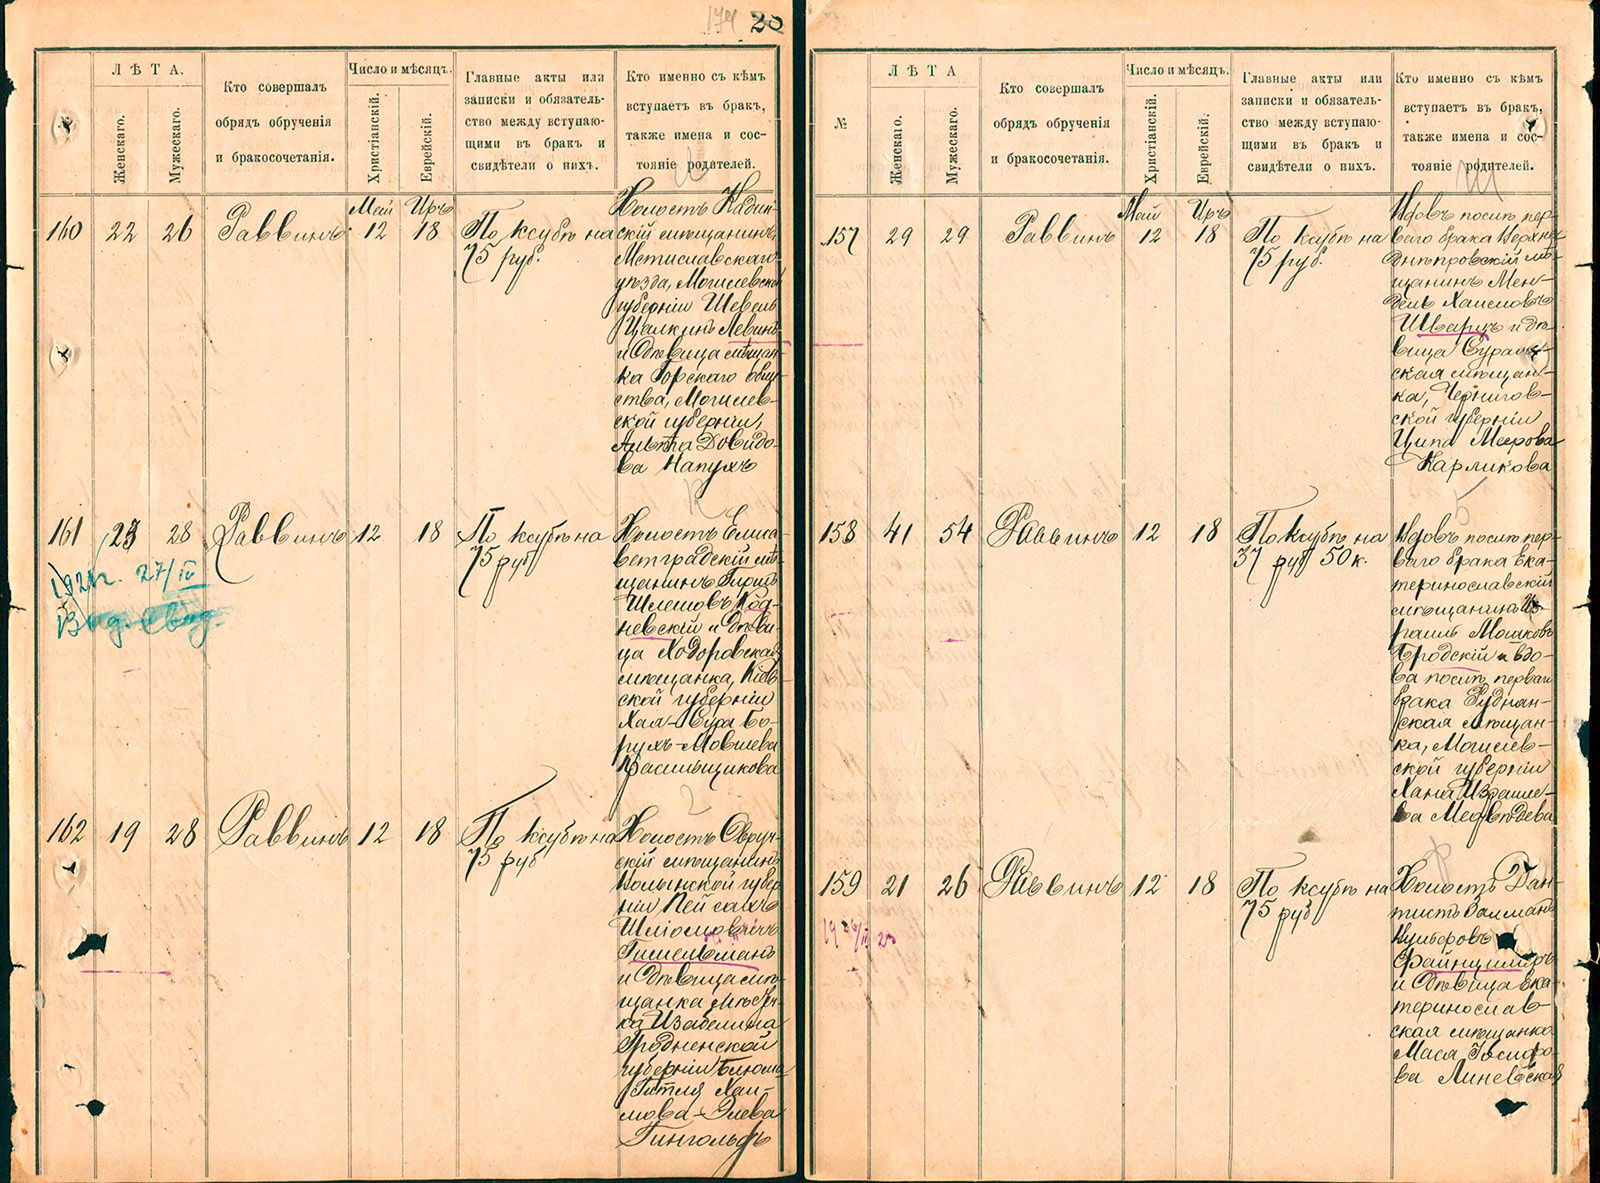 174 20
ЛѢТА.
Женскаго.
Мужескаго.
Кто совершалъ
обрядъ обрученія
и бракосочетанія.
Число и мѣсяцъ.
Христіанскій.
Еврейскій.
Главные акты или
записки и обязатель-
ство между вступаю-
щими въ бракъ и
свидѣтели о нихъ.
Кто именно съ кѣмъ
вступаетъ въ бракъ,
также имена и сос-
тояніе родителей.
160 22 26 Раввинъ Май 12 Иръ 18
По ксубѣ на
75 руб.
Холостъ Кадин-
скій мѣщанинъ
Мстиславскаго
уѣзда, Могилевской
губерніи Шевель
Цалкинъ Левинъ
и дѣвица мѣщан-
ка Горскаго обще-
ства, Могилев-
ской губерніи,
Довидо-
ва Напухъ
161 23 28 Раввинъ 12 18
По ксубѣ на
75 руб
1921г. 27/IV
Холостъ Елиса-
ветградскій мѣ-
щанинъ Гиршъ
Шлемовъ Код-
невскій и дѣви-
ца Ходоровская
мѣщанка, Кіев-
ской губерніи
Хая-Сура Бо-
рухъ-Мовшева
Красильщикова
162 19 28 Раввинъ 12 18
По ксубѣ на
75 руб
Холостъ Овруч-
скій мѣщанинъ
Волынской губер-
ніи Пейсахъ
Шліомовичъ
Гительманъ
и дѣвица мѣ-
щанка мѣстеч-
ка Изабелина
Гродненской
губерніи Блюма
Гитля Хаи-
мова-Элева
Гингольдъ
№
ЛѢТА
Женскаго.
Мужескаго.
Кто совершалъ
обрядъ обрученія
и бракосочетанія.
Число и мѣсяцъ.
Христіанскій.
Еврейскій.
Главные акты или
записки и обязатель-
ство между вступаю-
щими въ бракъ и
свидѣтели о нихъ.
Кто именно съ кѣмъ
вступаетъ въ бракъ,
также имена и сос-
тояніе родителей.
157 29 29 Раввинъ Май 12 Иръ 18
По ксубѣ на
75 руб.
Вдовъ послѣ пер-
ваго брака Верхне-
днѣпровскій мѣ-
щанинъ Мен-
дель Хаимовъ
Шварцъ и дѣ-
вица Сураж-
ская мѣщан-
ка, Чернигов-
ской губерніи
Ципа Меерова
Карликова
158 41 54 Раввинъ 12 18
По ксубѣ на
37 руб 50 к.
Вдовъ послѣ пер-
ваго брака Ека-
теринославскій
мѣщанинъ Из-
раиль Мошковъ
Бродскій и вдо-
ва послѣ перваго
брака Руднян-
ская мѣщан-
ка, Могилев-
ской губерніи
Хана Израиле-
ва Медвѣдева
159 21 26 Раввинъ 12 18
По ксубѣ на
75 руб
Холостъ Дан-
тистъ Залманъ
Файнциммеръ
и дѣвица Ека-
теринослав-
ская мѣщанка
Мася Іосифо-
ва Линевская